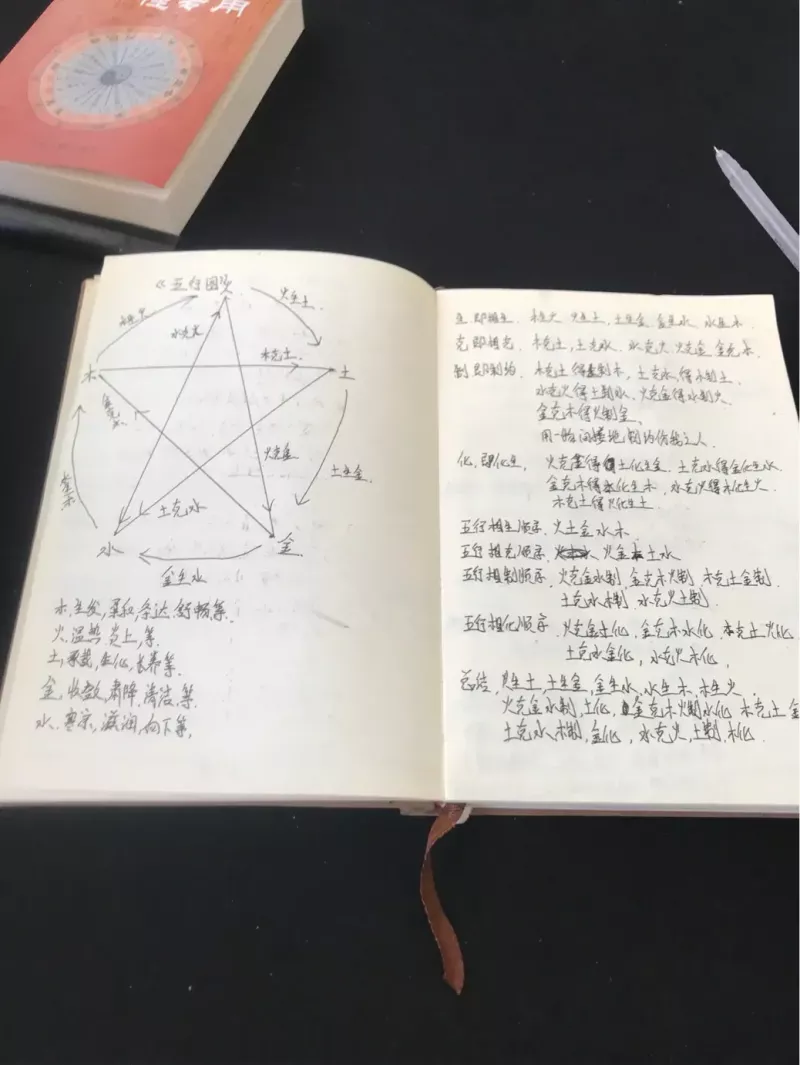 专用
《五行图》
火
木生火
火生土
水克火
木克土
木
土
金克木
火克金
水生木
土生金
土克水
水
金
金生水
木,生发,柔和,条达,舒畅,等.
火,温热,炎上,等.
土,承载,生化,长养等.
金,收敛,肃降,清洁,等.
水.寒凉,滋润,向下等,
生,即相生. 木生火 火生土,土生金,金生水 水生木.
克即相克. 木克土,土克水, 水克火,火克金,金克木.
制即制约. 木克土得金制木, 土克水,得木制土.
水克火得土制水、火克金得水制火
金克木得火制金,
用一 制约
化,即化生, 火克金得土化生金. 土克水得金化生水.
金克木得水化生木, 水克火得木化生火.
木克土得火化生土
五行相生顺序. 火土金水木
五行相克顺序. 火金木土水
五行相制顺序. 火克金水制,金克木火制 木克土金制.
土克水木制 水克火土制.
五行相化顺序. 火克金土化,金克木水化,木克土火化.
土克水金化, 水克火木化,
总结,火生土,土生金,金生水,水生木,木生火,
火克金水制,土化, 金克木火制水化 木克土金
土克水木制,金化, 水克火,土制,木化.